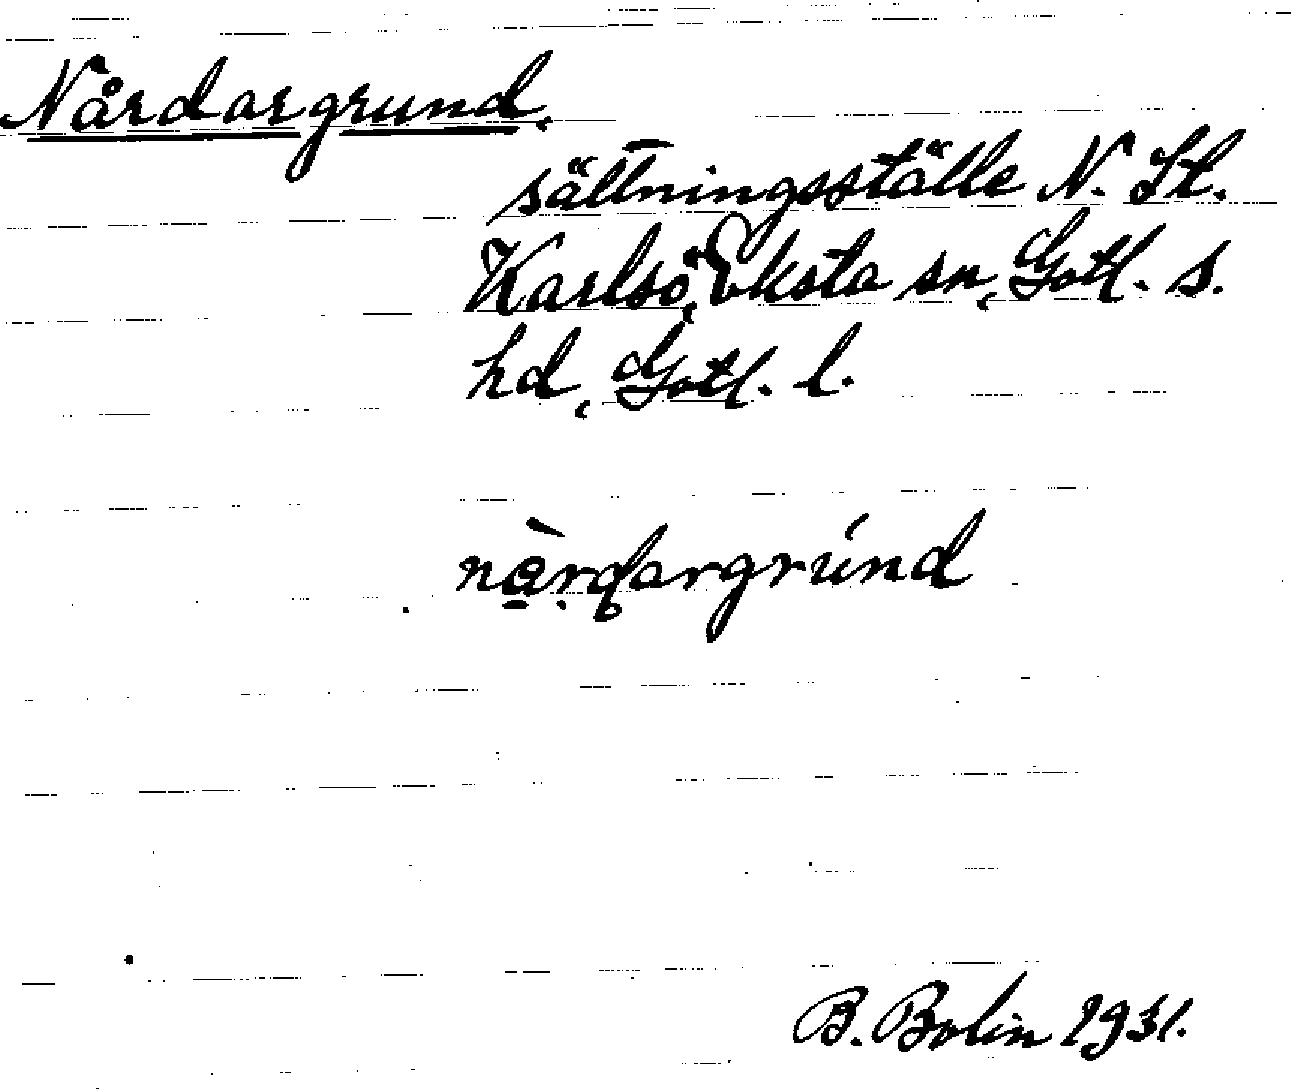 Nårdargrund.
sättningsställe N. St.
Karlsö, Eksta sn, Gotl. s.
hd, Gotl. l.
nàrdargrúnd
B. Bolin 1931.